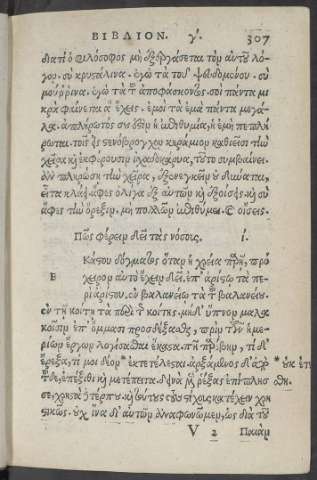 ΒΙΒΛΙΟΝ. γ΄. 307
διατί ὁ φιλόσοφος μὴ ἐξεργάσεται τὸν αὑτοῦ λό-
γον. σὺ κρυστάλινα. ἐγὼ τὰ τοῦ ψευδομένου. σὺ
μούρρινα. ἐγὼ τὰ τοῦ ἀποφάσκοντος. σοὶ πάντα μι
κρὰ φαίνεται ἃ ἔχεις. ἐμοὶ τὰ ἐμὰ πάντα μεγά-
λα. ἀπλήρωτός σου ἐστὶν ἡ ἐπιθυμία, ἡ ἐμὴ πεπλή
ρωται. τοῖς εἰς στενόβρογχον κεράμιον καθιεῖσι τὴν
χεῖρα καὶ ἐκφέρουσιν ἰσχαδοκάρυα, τοῦτο συμβαίνει.
ἂν πληρώσῃ τὴν χεῖρα, ἐξενεγκεῖν οὐ δύναται,
εἶτα κλάει. ἄφες ὀλίγα ἐξ αὐτῶν καὶ ἐξοίσεις. καὶ σὺ
ἄφες τὴν ὄρεξιν. μὴ πολλῶν ἐπιθύμει. καὶ οἴσεις.
Πῶς φέρειν δεῖ τὰς νόσους. ι.
Κάστου δόγματος ὅταν ἡ χρεία παρῇ, πρό
ε χειρον αὐτὸ ἔχειν δεῖ. ἐπ' ἀρίστῳ τὰ πε-
ρὶ ἀρίστου, ἐν βαλανείῳ τὰ περὶ βαλανείου.
ἐν τῇ κοίτῃ τὰ περὶ τῆς κοίτης. μηδ' ὕπνον μαλα
κοῖσιν ἐπ' ὄμμασι προσδέξασθαι, πρὶν τῶν ἡμε-
ρινῶν ἔργων λογίσασθαι ἕκαστα. πῆ παρέβην, τί δ'
ἔρεξα, τί μοι δέον* ἐκτετέλεσται. ἀρξάμενος δ' ἀπὸ * οὐκ ἐτε
τοῦδε, ἐπέξιθι καὶ μετέπειτα. δεινὰ μὲν ῥέξας ἐπίπλησ σθη.
σε, χρηστὰ τέρπου. καὶ τούτους τοὺς στίχους κατέχειν χρη
στικῶς. οὐχ ἵνα δι' αὐτῶν ἀναφωνῶμεν, ὡς διὰ τοῦ
V 2 Παιὰν